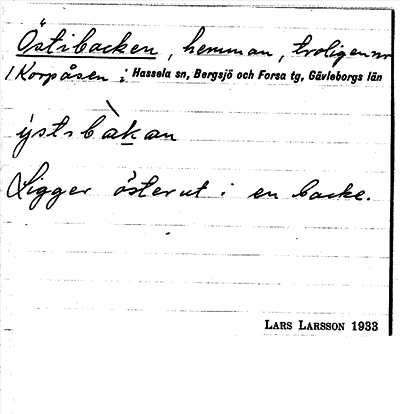 Östibacken, hemman, troligen nr
1 Korpåsen i Hassela sn, Bergsjö och Forsa tg, Gävleborgs län
ÿstsbàkan
Ligger österut i en backe.
LARS LARSSON 1933